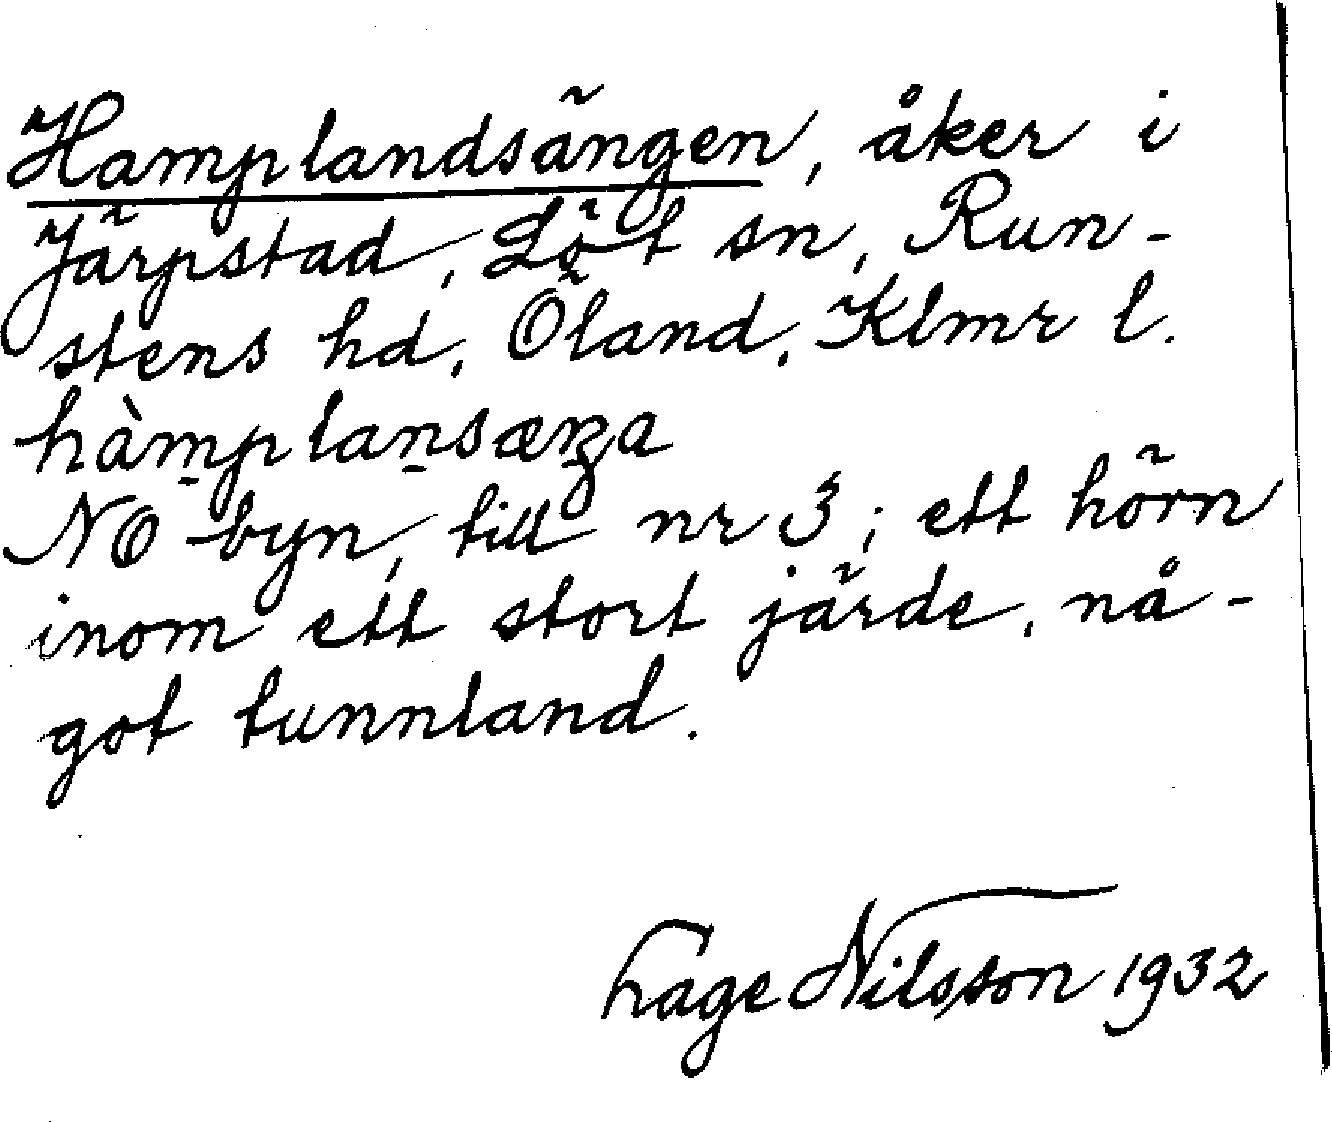 Hamplandsängen, åker i
Järpstad, Löt sn, Run-
stens hd, Öland, Klmr l.
hàmplansæŋa
NO byn, till nr 3; ett hörn
inom ett stort järde, nå-
got tunnland.
Hage Nilsson 1932